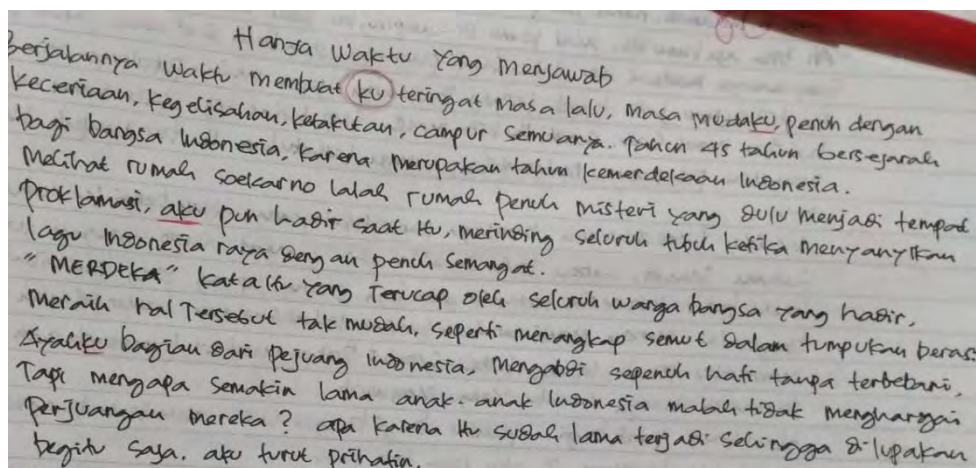 Hanya Waktu Yang Menjawab
Berjalannya Waktu membuat ku teringat masa lalu, masa mudaku, penuh dengan
keceriaan, kegelisahan, ketakutan, campur semuanya. Tahun 45 tahun bersejarah
bagi bangsa Indonesia, karena merupakan tahun kemerdekaan Indonesia.
Melihat rumah soekarno ialah rumah penuh misteri yang dulu menjadi tempat
Proklamasi, aku pun hadir saat itu, merinding seluruh tubuh ketika menyanyikan
lagu Indonesia raya dengan penuh semangat.
"MERDEKA" kata itu yang Terucap oleh seluruh warga bangsa yang hadir,
Meraih hal Tersebut tak mudah, seperti menangkap semut dalam tumpukan beras.
Ayahku bagian dari pejuang indonesia, mengabdi sepenuh hati tanpa terbebani,
Tapi mengapa semakin lama anak-anak Indonesia malah tidak menghargai
Perjuangan mereka? apa karena itu sudah lama terjadi sehingga dilupakan
begitu saja. aku turut prihatin.